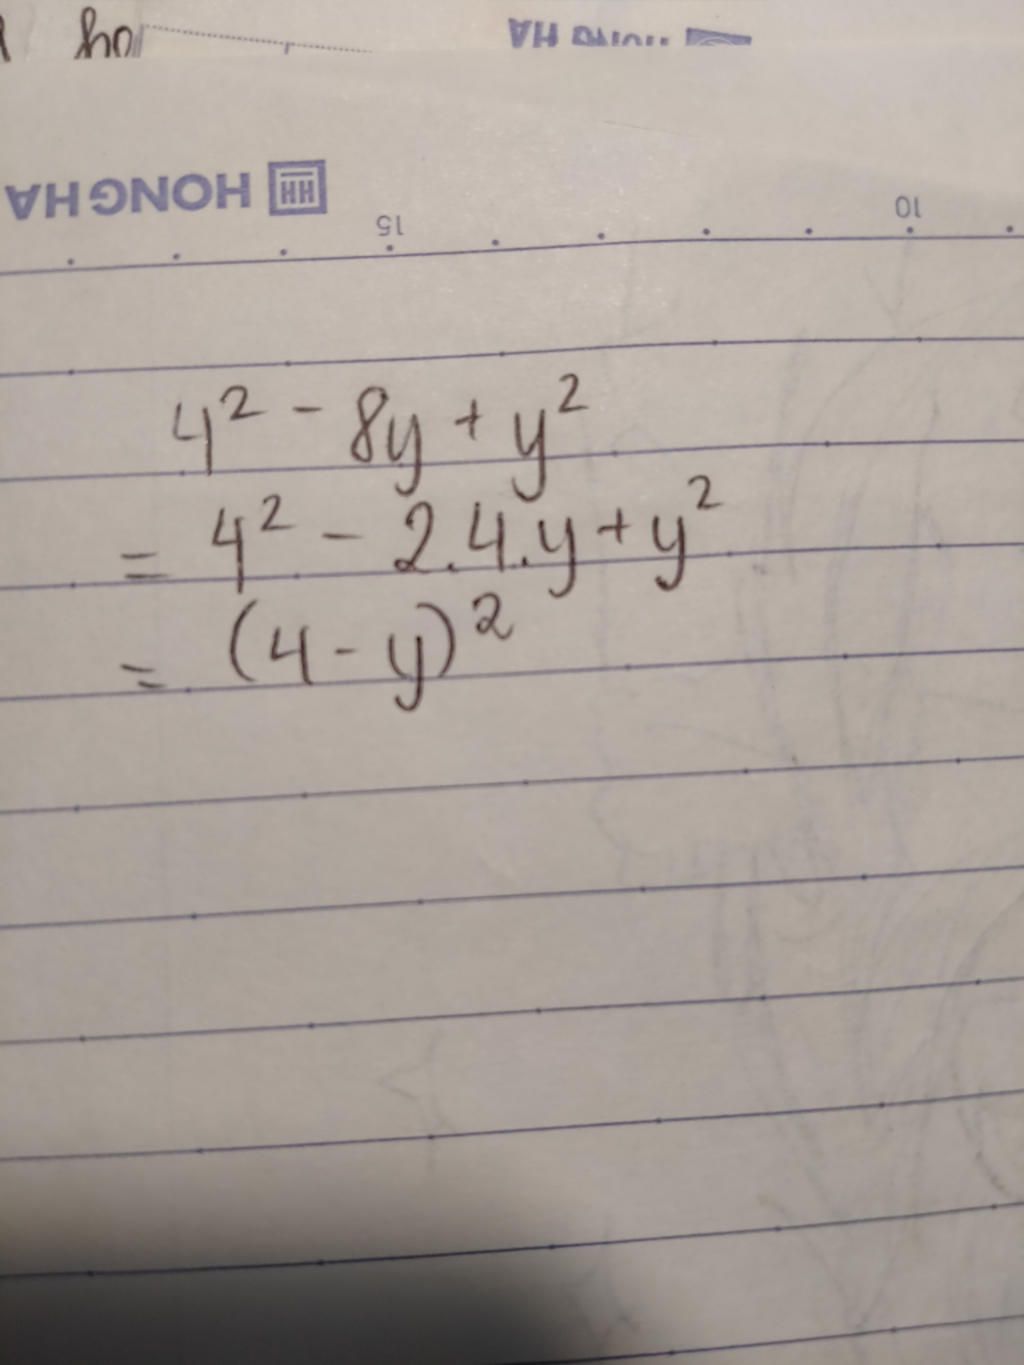 HONG HA
HONG HA
15
10
4² - 8y + y²
= 4² - 2.4.y + y²
= (4 - y)²